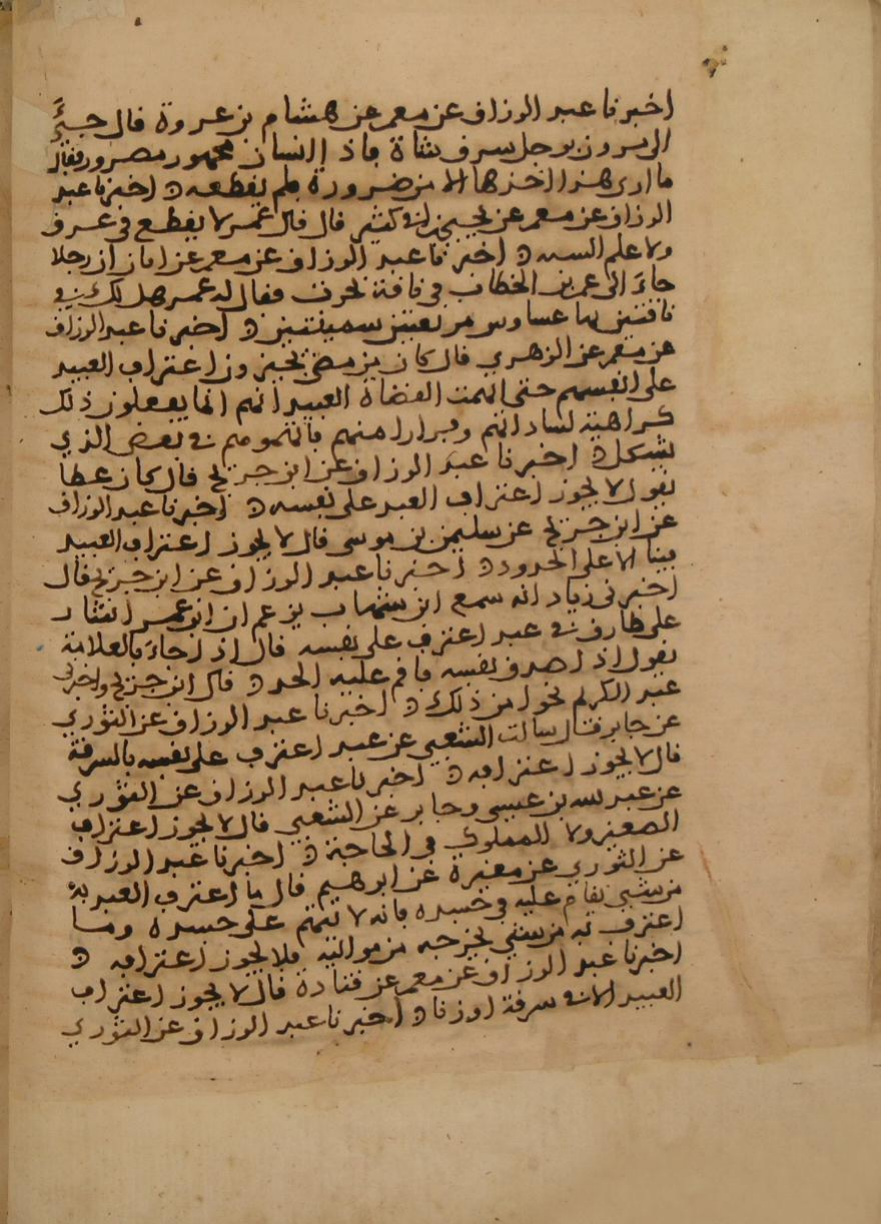 اخبرنا عبد الرزاق عن معمر عن هشام بن عروة قال جيئ
الى مروان برجل سرق شاة فاذا انسان مجهود مصرور فقال
ما ارى هذا اخذها الا من ضرورة فلم يقطعه اخبرنا عبد
الرزاق عن معمر عن يحيى بن ابي كثير قال قال عمر لا يقطع في عذق
ولا عام السنة اخبرنا عبد الرزاق عن معمر عن ابان ان رجلا
جاء الى عمر بن الخطاب في ناقة نحرت فقال له عمر هل لك في
ناقتين بها عشاوين مربعتين سمينتين اخبرنا عبد الرزاق
عن معمر عن الزهري قال كان من مضى يجيزون اعتراف العبيد
على انفسهم حتى اتهمت القضاة العبيد انهم انما يفعلون ذلك
كراهية لساداتهم وفرارا منهم فاتهموهم في بعض الذي
يشكل اخبرنا عبد الرزاق عن ابن جريج قال كان عطا
يقول لا يجوز اعتراف العبد على نفسه اخبرنا عبد الرزاق
عن ابن جريج عن سليمن بن موسى قال لا يجوز اعتراف العبيد
الا على الحدود اخبرنا عبد الرزاق عن ابن جريج قال
اخبرني زياد انه سمع ابن شهاب يزعم ان ابن عمر اشار
على طارق في عبد اعترف على نفسه قال اذا جاء بالعلامة
يقول اذا صدق نفسه فاقم عليه الحد قال ابن جريج واخبرني
عبد الكريم نحوا من ذلك اخبرنا عبد الرزاق عن الثوري
عن جابر قال سالت الشعبي عن عبد اعترف على نفسه بالسرقة
قال لا يجوز اعترافه اخبرنا عبد الرزاق عن الثوري
عن عبد الله بن عيسى وجابر عن الشعبي قال لا يجوز اعتراف
الصغير ولا المملوك في الجراحة اخبرنا عبد الرزاق
عن الثوري عن مغيرة عن ابرهيم قال ما اعترف العبد به
من شيء يقام عليه في جسده فانه لا يتهم على جسده وما
اعترف به من شيء يخرجه من مواليه فلا يجوز اعترافه
اخبرنا عبد الرزاق عن معمر عن قتادة قال لا يجوز اعتراف
العبيد الا في سرقة او زنا اخبرنا عبد الرزاق عن الثوري